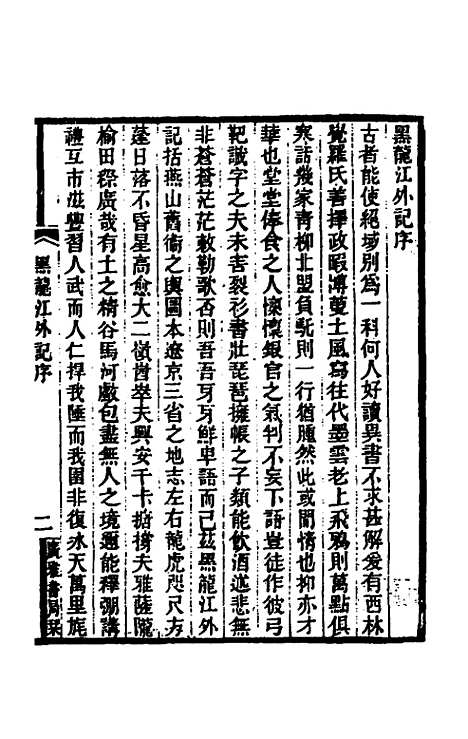 黑龍江外記序
古者能使絕域別爲一科何人好讀異書不求甚解爰有西林
覺羅氏善擇政暇溥蔓土風寫往代墨雲老上飛鴉則萬點俱
寒話幾家靑柳北盟負 則一行猶腫然此或閒情也抑亦才
華也堂堂俸食之人懷懷銀宮之氣判不妄下語豈徒作彼弓
靶識字之夫未害裂衫書壯琵琶擁帳之子類能飮酒道悲無
非蒼蒼茫茫敕勒歌否則吾吾牙牙鮮卑語而已茲黑龍江外
記括燕山舊衞之輿圖本遼京三省之地志左右龍虎咫尺方
蓬日落不昏星高愈大二嶺崷崒夫興安千卡 撐夫雅薩隴
榆田 廣哉有土之 谷馬河 包盡無人之境 能釋 講
禮互市 習人武而人仁捍我陲而我圉非復冰天萬里旄
黑龍江外記序
二
廣雅書局栞